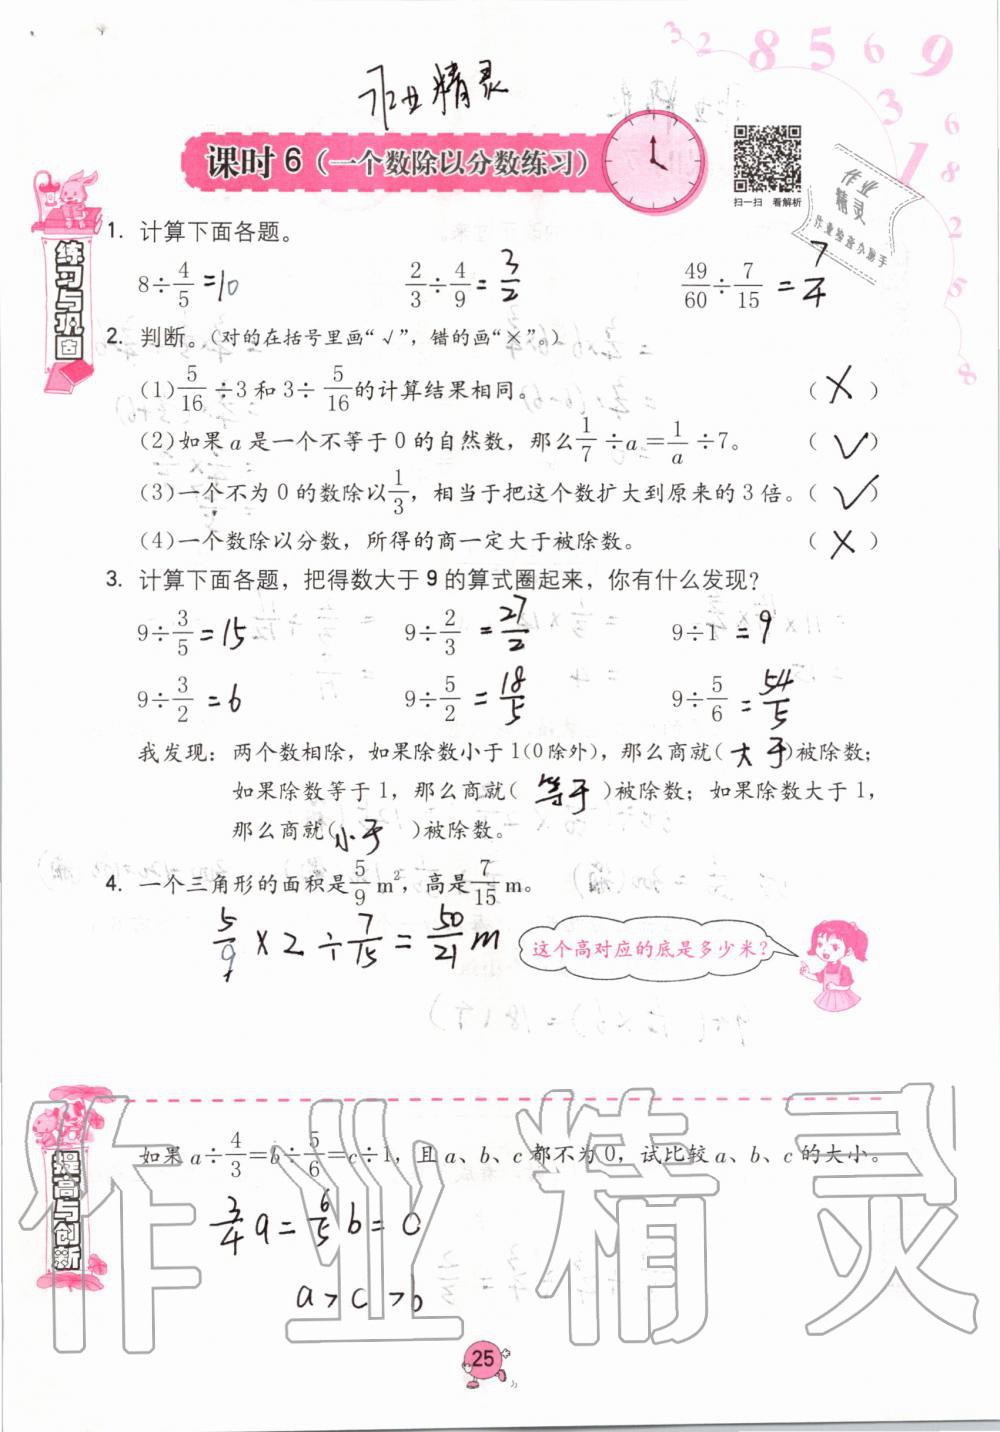 作业精灵
课时6（一个数除以分数练习）
扫一扫 看解析
作业
精灵
作业检查小助手
练习与巩固
1. 计算下面各题。
8÷4/5=10 2/3÷4/9=3/2 49/60÷7/15=7/4
2. 判断。（对的在括号里画“√”，错的画“×”。）
(1)5/16÷3和3÷5/16的计算结果相同。 （×）
(2)如果a是一个不等于0的自然数，那么1/7÷a=1/a÷7。 （√）
(3)一个不为0的数除以1/3，相当于把这个数扩大到原来的3倍。（√）
(4)一个数除以分数，所得的商一定大于被除数。 （×）
3. 计算下面各题，把得数大于9的算式圈起来，你有什么发现？
9÷3/5=15 9÷2/3=27/2 9÷1=9
9÷3/2=6 9÷5/2=18/5 9÷5/6=54/5
我发现：两个数相除，如果除数小于1(0除外)，那么商就(大于)被除数；
如果除数等于1，那么商就(等于)被除数；如果除数大于1，
那么商就(小于)被除数。
4. 一个三角形的面积是5/9m²，高是7/15m。
5/9×2÷7/15=50/21m
这个高对应的底是多少米？
提高与创新
如果a÷4/3=b÷5/6=c÷1，且a、b、c都不为0，试比较a、b、c的大小。
3/4a=6/5b=c
a>c>b
作业精灵
25